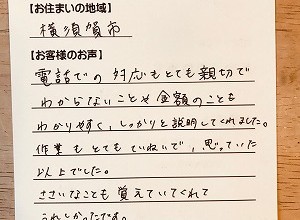 【お住まいの地域】
横須賀市
【お客様のお声】
電話での対応もとても親切で
わからないことや金額のことも
わかりやすく、しっかりと説明してくれました。
作業もとてもていねいで、思っていた
以上でした。
ささいなことも覚えていてくれて
うれしかったです。